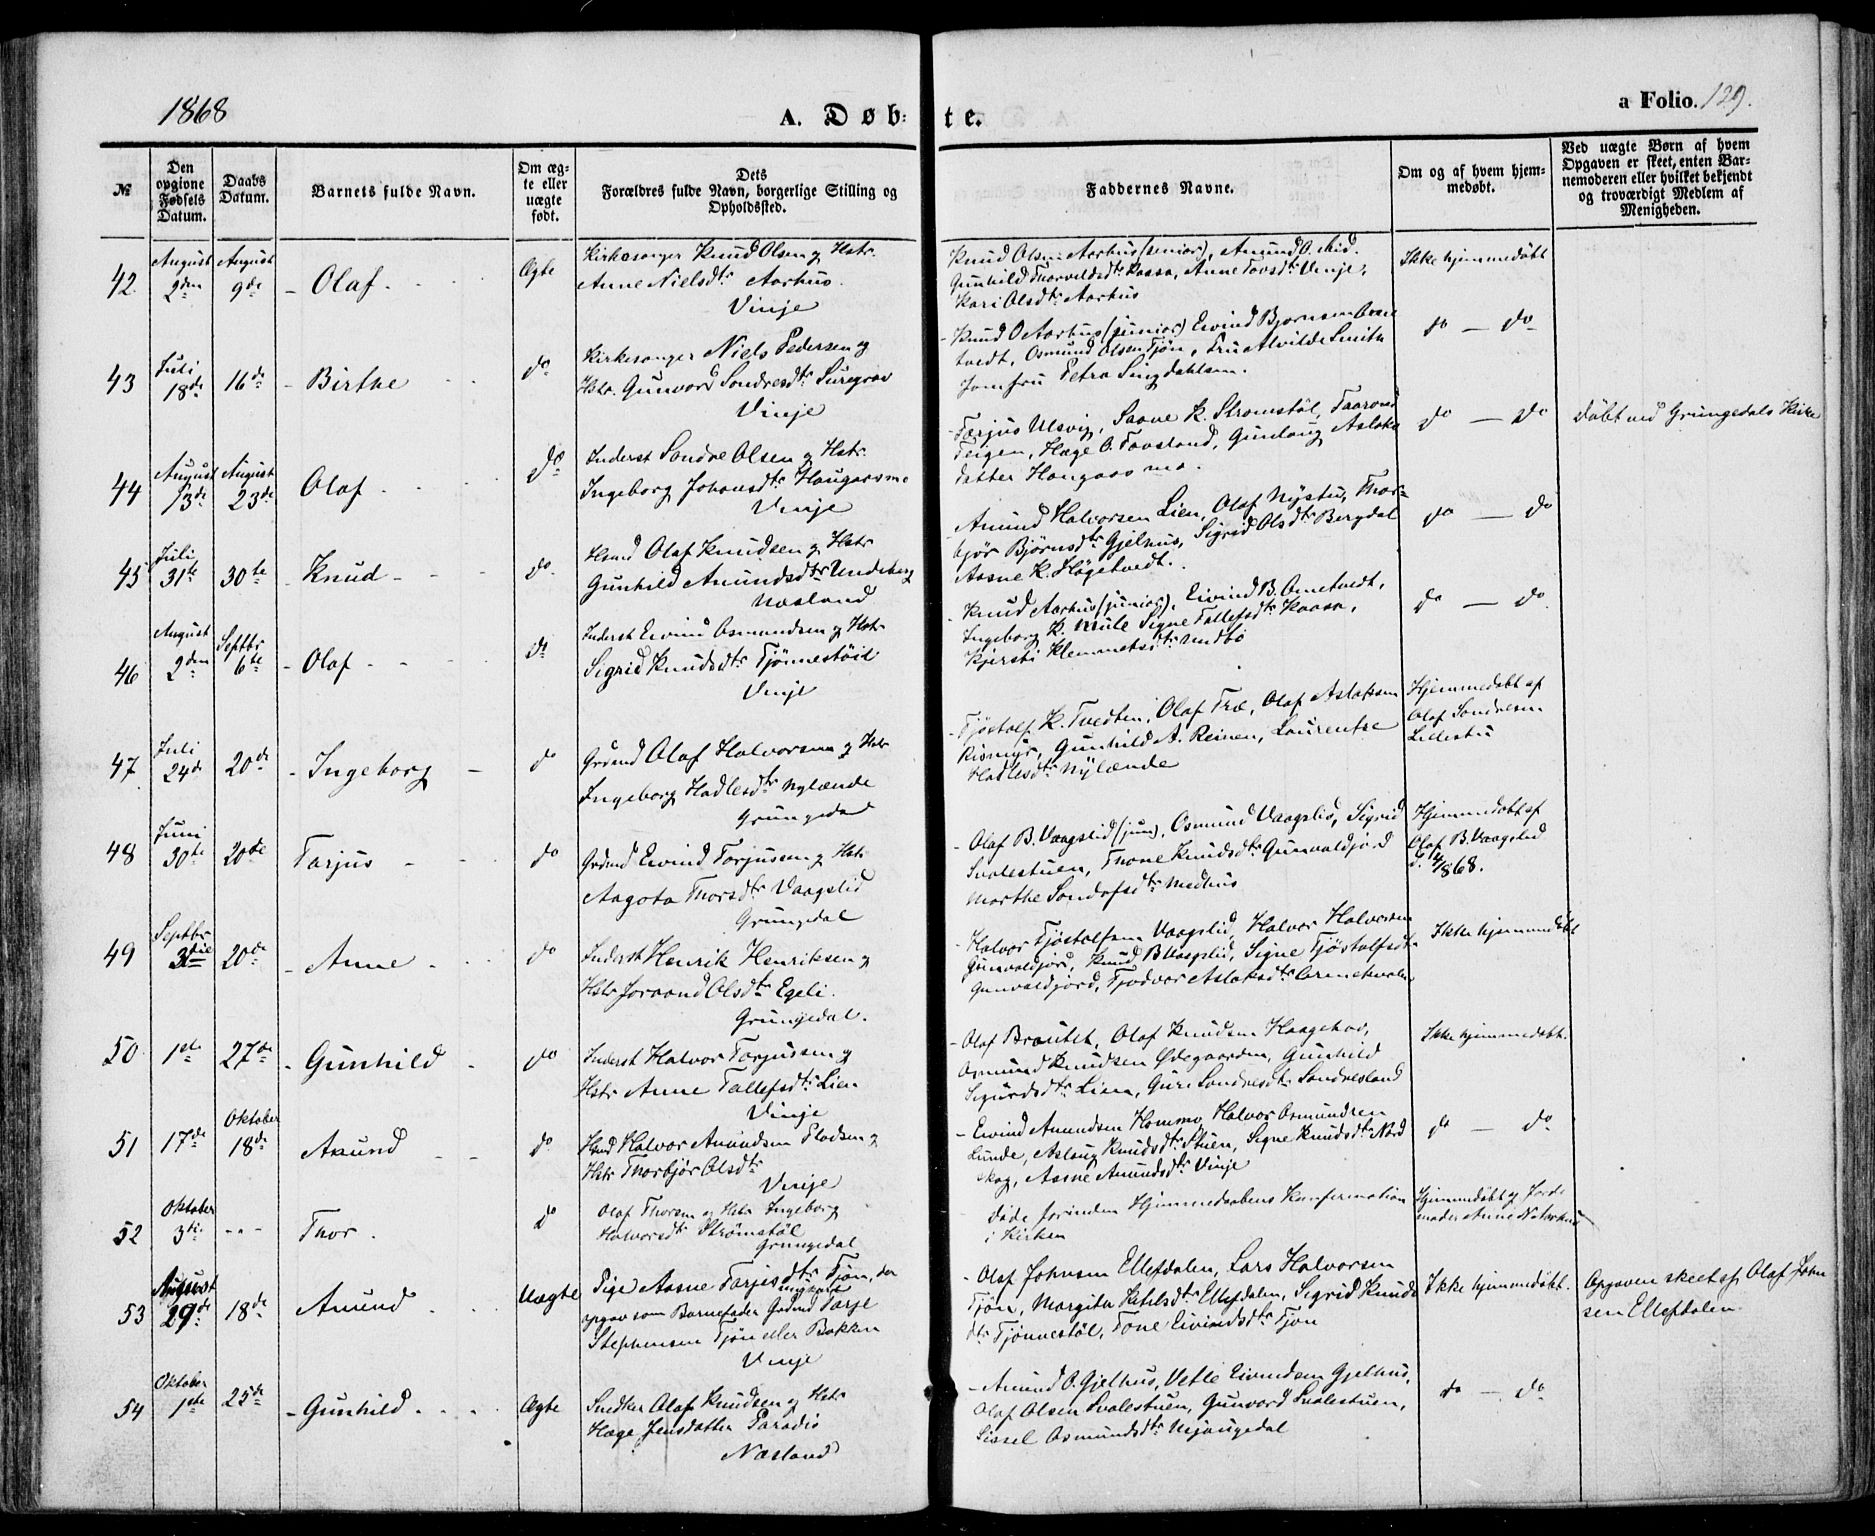 1868
A. Døb-
te.
a Folio. 129.
№
Den opgivne Fødsels Datum.
Daabs Datum.
Barnets fulde Navn.
Om ægte eller uægte født.
Dets Forældres fulde Navn, borgerlige Stilling og Opholdssted.
Faddernes Navne.
Om og af hvem hjemmedøbt.
Ved uægte Børn af hvem Opgaven er skeet, enten Barnemoderen eller hvilket bekjendt og troværdigt Medlem af Menigheden.
42 August 2den August 9de Olaf Ægte
Kirkesanger Knud Olsen og Hstr.
Anne Nielsdtr Aarhus.
Vinje
Knud Olsen Aarhus (senior), Amund O.
Gunhild Thorvildsdtr Kaasa, Anne Tovsdtr Vinje,
Kari Olsdtr Aarhus
Ikke hjemmedøbt
43 Juli 18de 16de Birthe do
Kirkesanger Niels Pedersen og
Hstr. Gunvord Sondresdtr Suregrav
Vinje
Knud O Aarhus (junior) Eivind Bjornsen
tvedt, Osmund Olsen Tjøn, Fru Alvilde Smith
Jomfru Petra Singdahlsen.
do — do
44 August 13de August 23de Olaf do
Inderst Sondre Olsen og Hstr.
Ingeborg Johansdtr Haugaas
Vinje
Tarjus Ulsvig, Saave K. Stromstøl,
Teigen, Hæge O. Tovsland, Gunlaug Aslaks
datter
do — do
Døbt ved Grungedals Kirke
45 Juli 31te 30te Knud do
Olaf Knudsen og Hstr
Gunhild Amundsdtr Undeberg
Næsland
Amund Halvorsen Lien, Olaf Nystu, Thor-
bjør Bjørnsdtr Gjelhus, Sigrid Olsdtr Bergdal
Aasne K. Høgetvedt.
do — do
46 August 2den Septbr 6te Olaf do
Inderst Eivind Osmundsen og Hstr
Sigrid Knudsdtr Tjønnestøil
Vinje
Knud Aarhus (junior), Eivind B.
Ingeborg K. Mule Signe Tallefsdtr Kaasa,
Kjersti Klemmetsdtr Midbø
do — do
47 Juli 24de 20de Ingeborg do
Grdmd Olaf Halvorsen og Hstr
Ingeborg Hadlesdtr Nylænde
Grungedal
Tjøstolf K. Tvedten, Olaf Træ, Olaf Aslaksen
Rismyr, Gunhild A. Reinen, Laurentse
Hadlesdtr Nylænde
Hjemmedøbt af
Olaf Sondresen
Lillestu
48 Juni 30te 20de Tarjus do
Grdmd Eivind Tarjusen og Hstr
Aagota Thorsdtr Vaagslid
Grungedal
Olaf B. Vaagslid (jun), Osmund Vaagslid, Sigrid
Svalestuen, Thone Knudsdtr Gunvaldjord
Marthe Sondofsdtr Midhus
Hjemmedøbt af
Olaf B. Vaagslid
49 Septbr 3die 20de Anne do
Inderst Henrik Henriksen og
Hstr Joraand Olsdtr Egeli.
Grungedal.
Halvor Tjøstolfsen Vaagslid, Halvor Halvorsen
Gunvaldjord, Knud B Vaagslid, Signe Tjøstolfsdtr
Gunvaldjord, Tjodvor Aslaksdtr
Ikke hjemmedøbt
50 1ste 27de Gunhild do
Inderst Halvor Tarjussen og
Hstr Anne Tallefsdtr Lien
Vinje
Olaf Brautet, Olaf Knudsen Haagehov,
Osmund Knudsen Ødegaarden, Gunhild
Sigurdsdtr Lien, Guri Sondresdtr Sondresland
Ikke hjemmedøbt.
51 17de Oktober 18de Amund do
Halvor Amundsen Flodsen og
Hstr Thorbjør Olsdtr
Vinje
Eivind Amundsen Hommo, Halvor Osmundsen
Lunde, Aslaug Knudsdtr Stuen, Signe Knudsdtr Nord
skog, Aasne Amundsdtr Vinje
do — do
52 Oktober 3die Thor. do
Olaf Thorsen og Hstr Ingeborg
Halvorsdtr Strømstøl
Grungedal
Døde forinden Hjemmedaabens Konfirmation
i Kirken
Hjemmedøbt af Jorde
moder Anne
53 August 29de 18de Amund Uægte
Pige Aasne Tarjesdtr Tjøn, der
opgav som Barnefader Tarje
Stephensen Tjøn eller Bakken
Vinje
Olaf Johnsen Ellefdalen, Lars Halvorsen
Tjøn, Margita Ketilsdtr Ellefdalen, Sigrid Knuds
dtr Tjønnestøl, Tone Eivindsdtr Tjøn
Ikke hjemmedøbt.
Opgaven skeet af Olaf John
sen Ellefdalen
54 Oktober 1ste 25de Gunhild Ægte
Snedker Olaf Knudsen og Hstr
Hæge Jensdatter Paradis
Næsland
Amund O. Gjelhus, Vetle Eivindsen Gjelhus,
Olaf Olsen Svalestuen, Gunvord Svalestuen,
Sissel Osmundsdtr Mjaugedal
do — do